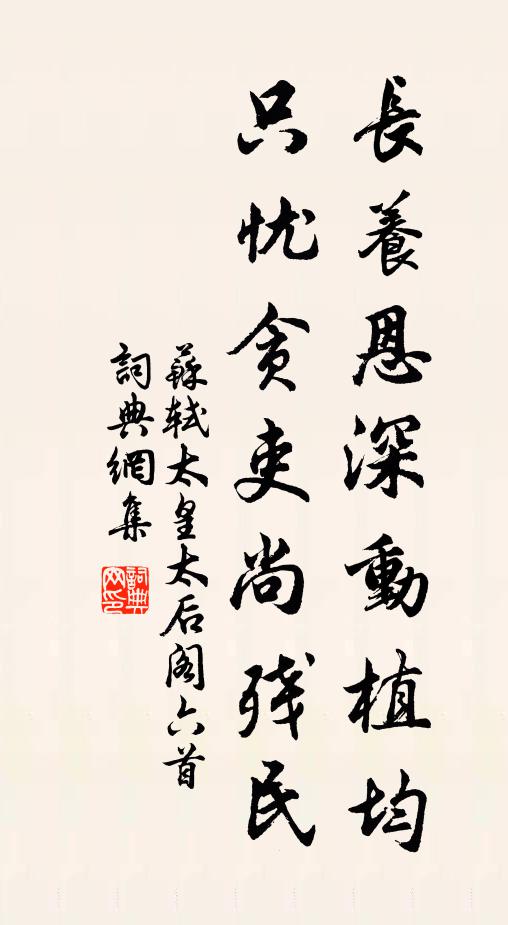 長養恩深動植均
只忧貪吏尚残民
蘇軾太皇太后阁六首
詞典網集
詞典
网印